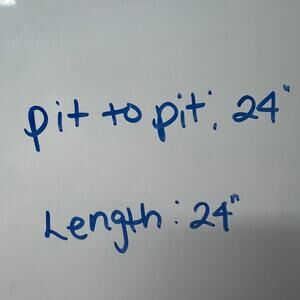 pit to pit: 24"
Length: 24"